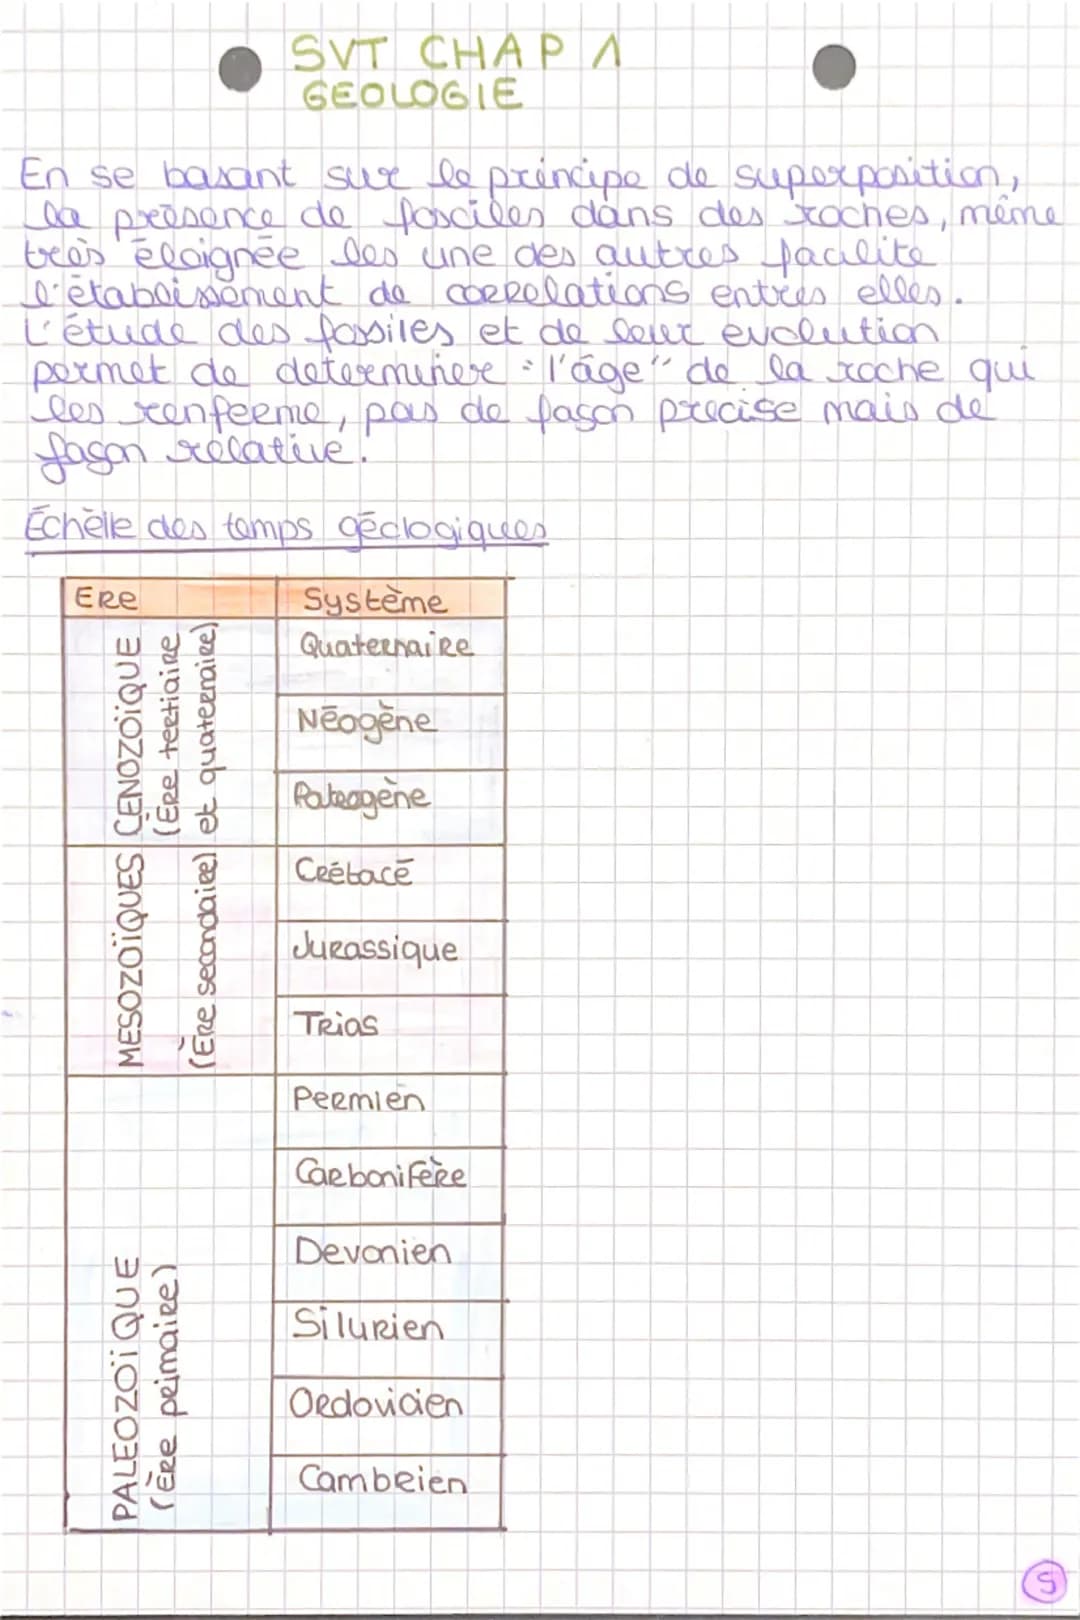 SVT CHAP 1
GEOLOGIE
En se basant sur le principe de superposition,
la présence de fosciles dans des roches, même
très éloignée les une des autres facilite
l'établissement de correlations entres elles.
L'étude des fossiles et de leur evolution
permet de determiner "l'âge" de la roche qui
les renferme, pas de façon precise mais de
façon relative.
Échèlle des temps géologiques
ERE Système
CENOZOÏQUE
(Ère tertiaire
et quaternaire)
Quaternaire
Néogène
Paleogène
MESOZOÏQUES
(Ère secondaire)
Crétacé
Jurassique
Trias
PALEOZOÏQUE
(Ère primaire)
Permien
Carbonifère
Devonien
Silurien
Ordovicien
Cambrien
5